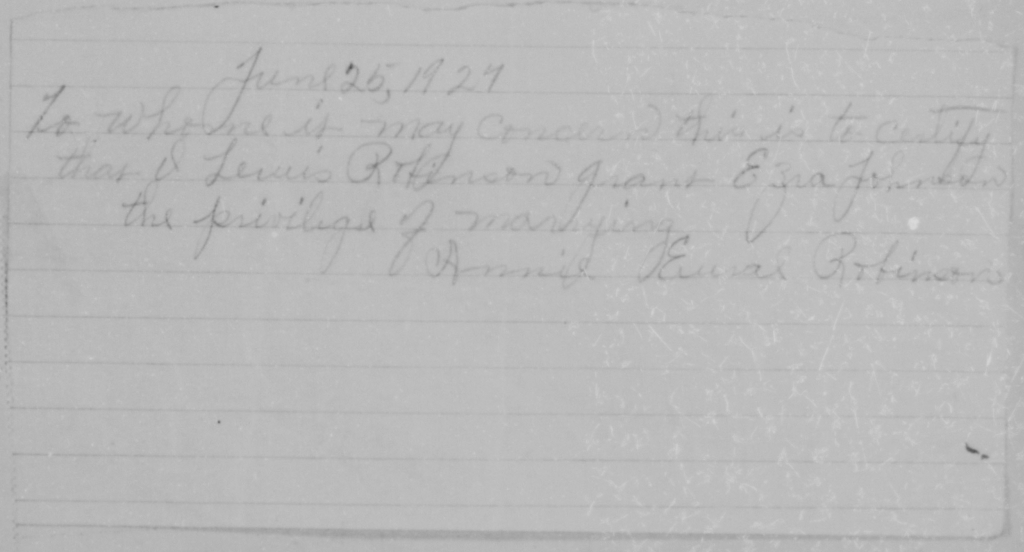 June 25, 1927
To Whome it may concern this is to certify
that I Lewis Robinson grant Ezra Johnson
the privilege of marrying
Annie Robinson